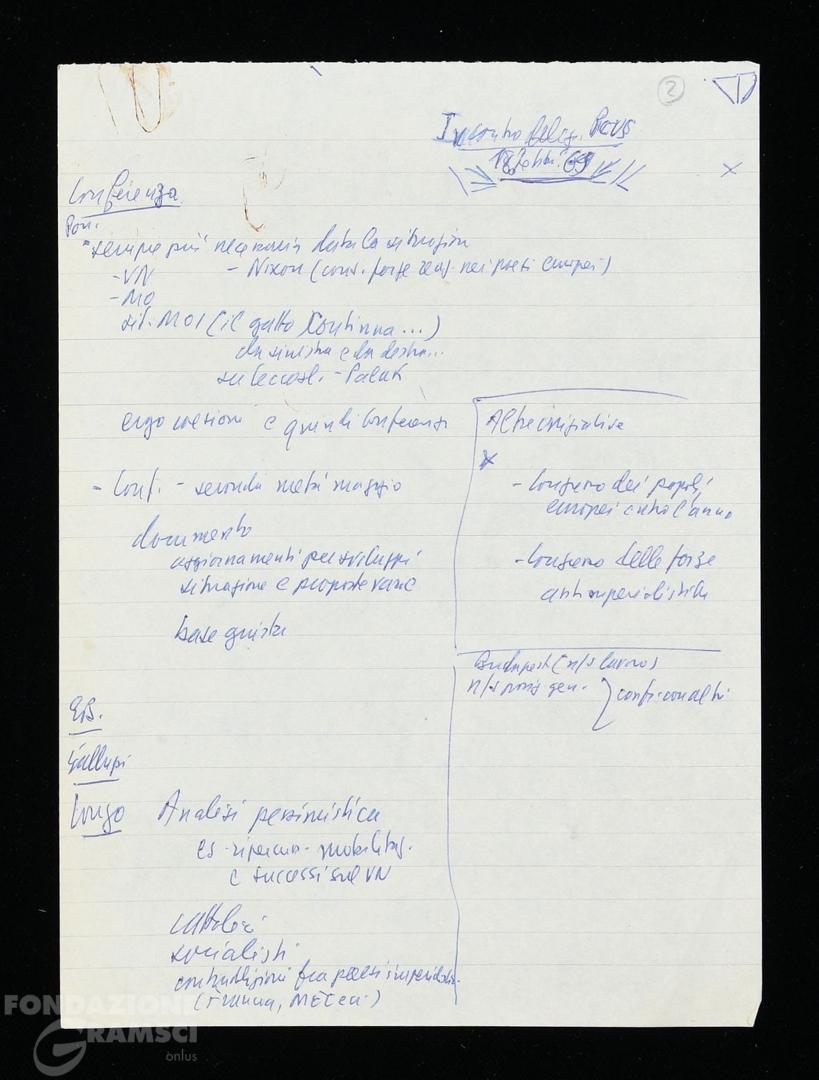 2
Incontro deleg. PCUS
18 febbr. 69
Conferenza
Pon.
"sempre più necessaria data la situazion
- VN - Nixon (cons. forze reaz. nei paesi europei)
- MO
sit. MOI (il gatto continua...)
da sinistra e da destra...
ergo coesione e quindi Conferenza
- Conf. - seconda metà maggio
documento
aggiornamenti per sviluppi
situazione e proposte varie
base giusta
Altre iniziative
x
- Congresso dei popoli
europei entro l'anno
- Congresso delle forze
antimperialistiche
Budapest (n/s lavoro)
n/s posiz gen.
conf. con altri
E.B.
Galluzzi
Longo Analisi pessimistica
es. ripercus. mobilitaz.
e successi sul VN
cattolici
socialisti
contraddizioni fra paesi imperialis.
(Francia, MEC ecc.)
FONDAZIONE
GRAMSCI
onlus